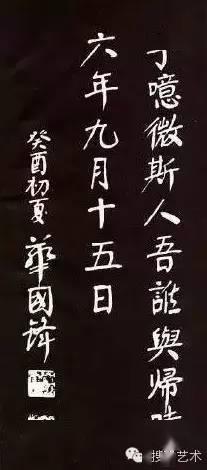 噫微斯人吾誰與歸
六年九月十五日
癸酉初夏 華國鋒
搜 艺术